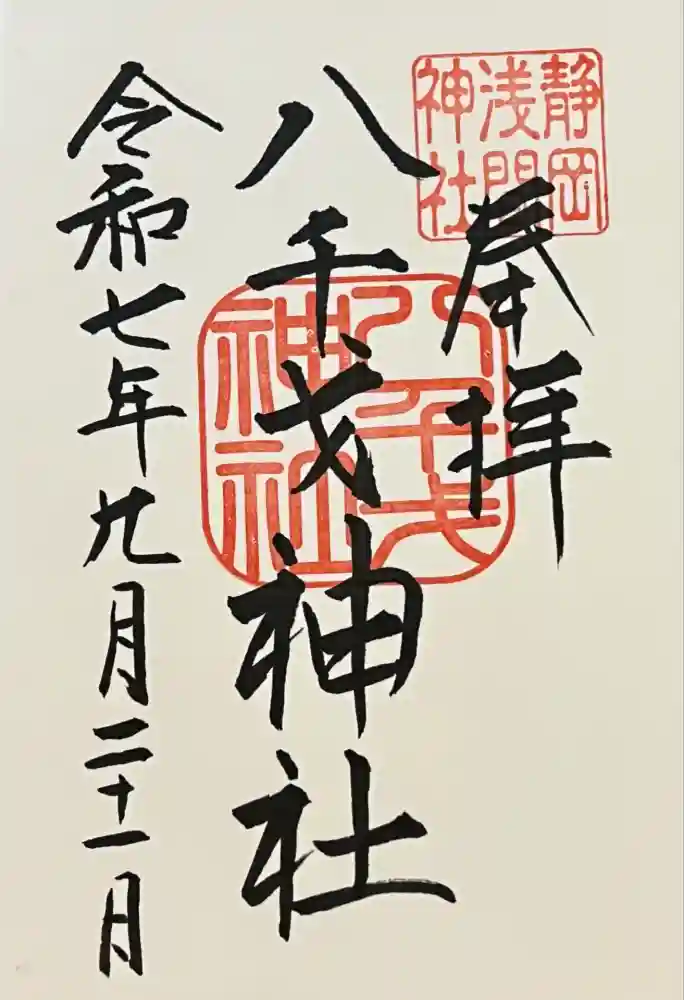 静岡
浅間
神社
奉拝
八千戈
神社
八千戈神社
令和七年九月二十一日